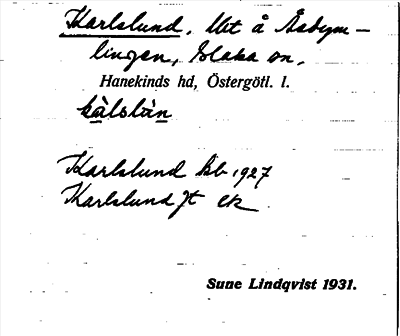 Karlslund, lht å Åsbym-
lingen, Slaka sn,
Hanekinds hd, Östergötl. l.
kàlslùn
Karlslund kb 1927
Karlslund Jt ek
Sune Lindqvist 1931.